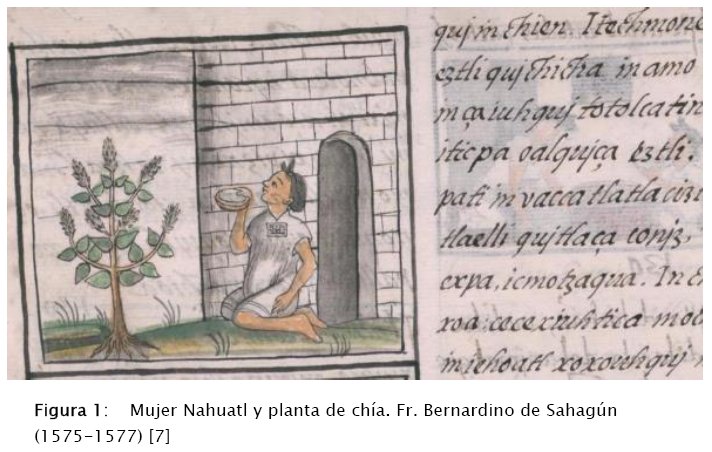 quj in chien. Itechmone
eztli qujchicha in amo
in ça iuhquj totolcatin
itic pa oalquiça eztli.
pati in vacca tlatlaciz
tlaelli qujtlaça conjz,
expa, ic motzaqua. In
xoa: cecexiuhtica mo
in iehoatl xoxouhquj
Figura 1: Mujer Nahuatl y planta de chía. Fr. Bernardino de Sahagún
(1575-1577) [7]